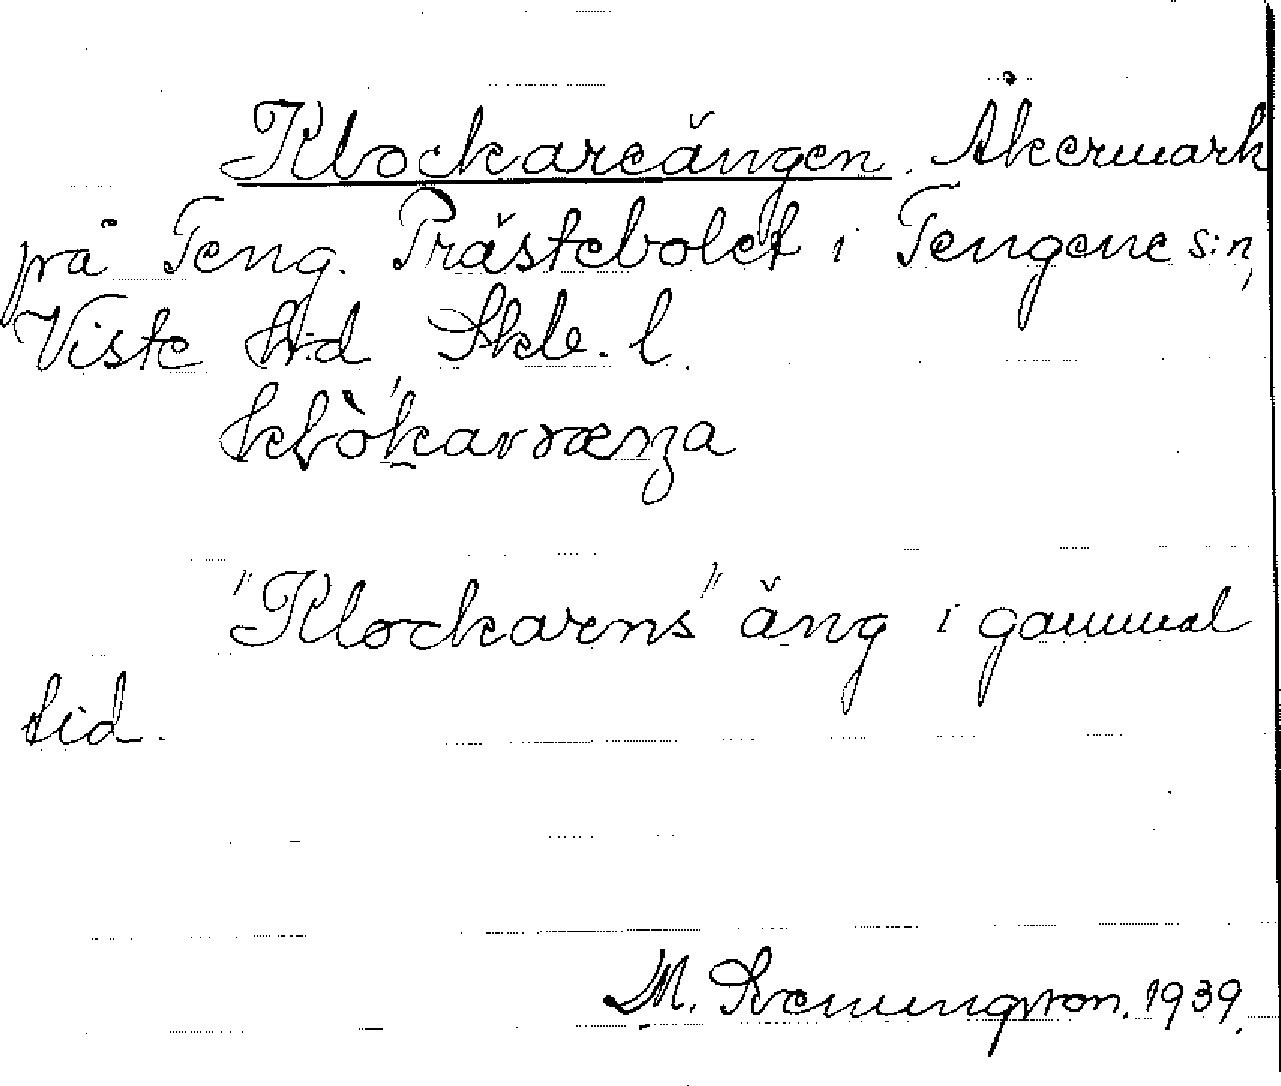 Klockareängen. Åkermark
på Teng. Prästebolet i Tengene s:n,
Viste hd Skb. l.
"Klockarens" äng i gammal
tid.
M. 1939.